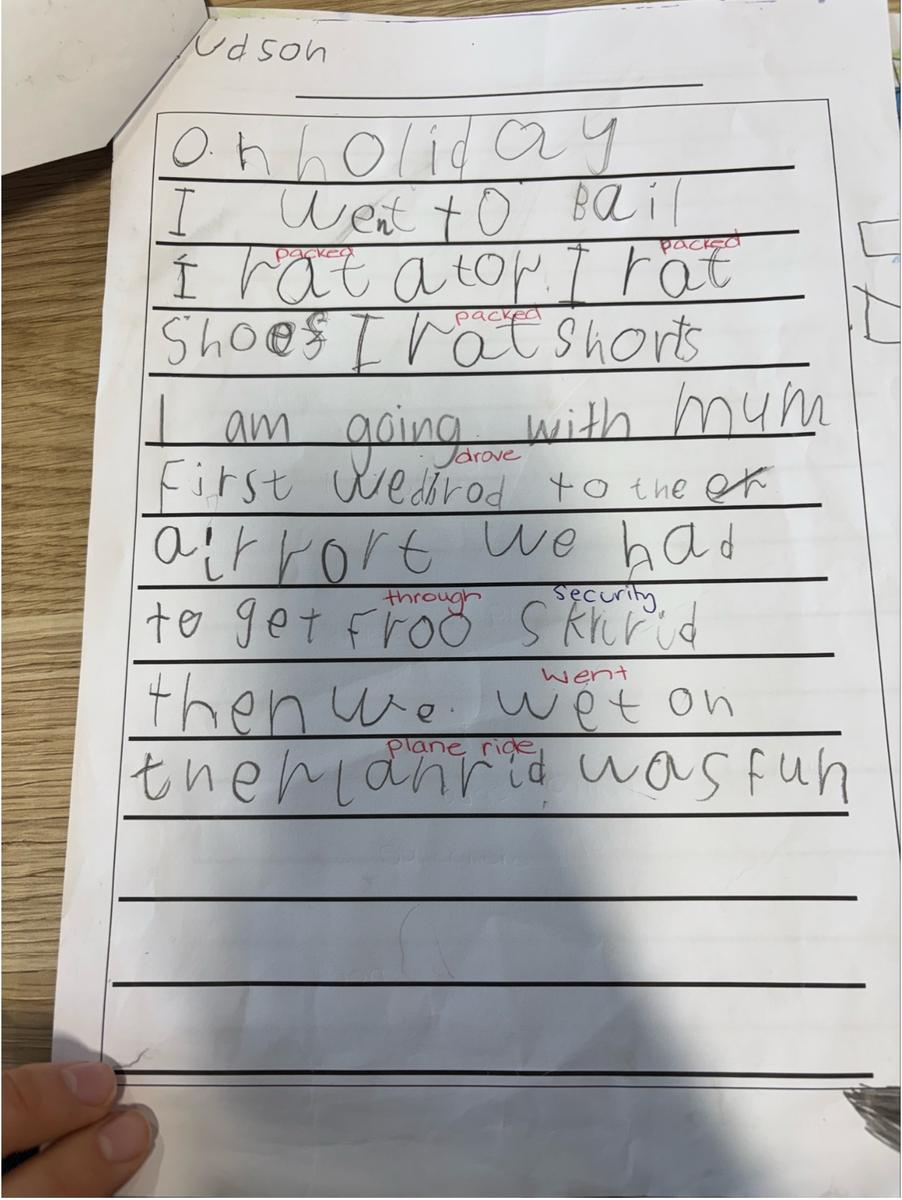 udson
On holiday
I went to Bail
packed packed
I rat a top. I rat
packed
shoes I rat shorts
I am going with mum
drove
First we dirod to the
airrort we had
through security
to get Froo Skririd
went
then we. wet on
plane ride
the planrid was fun